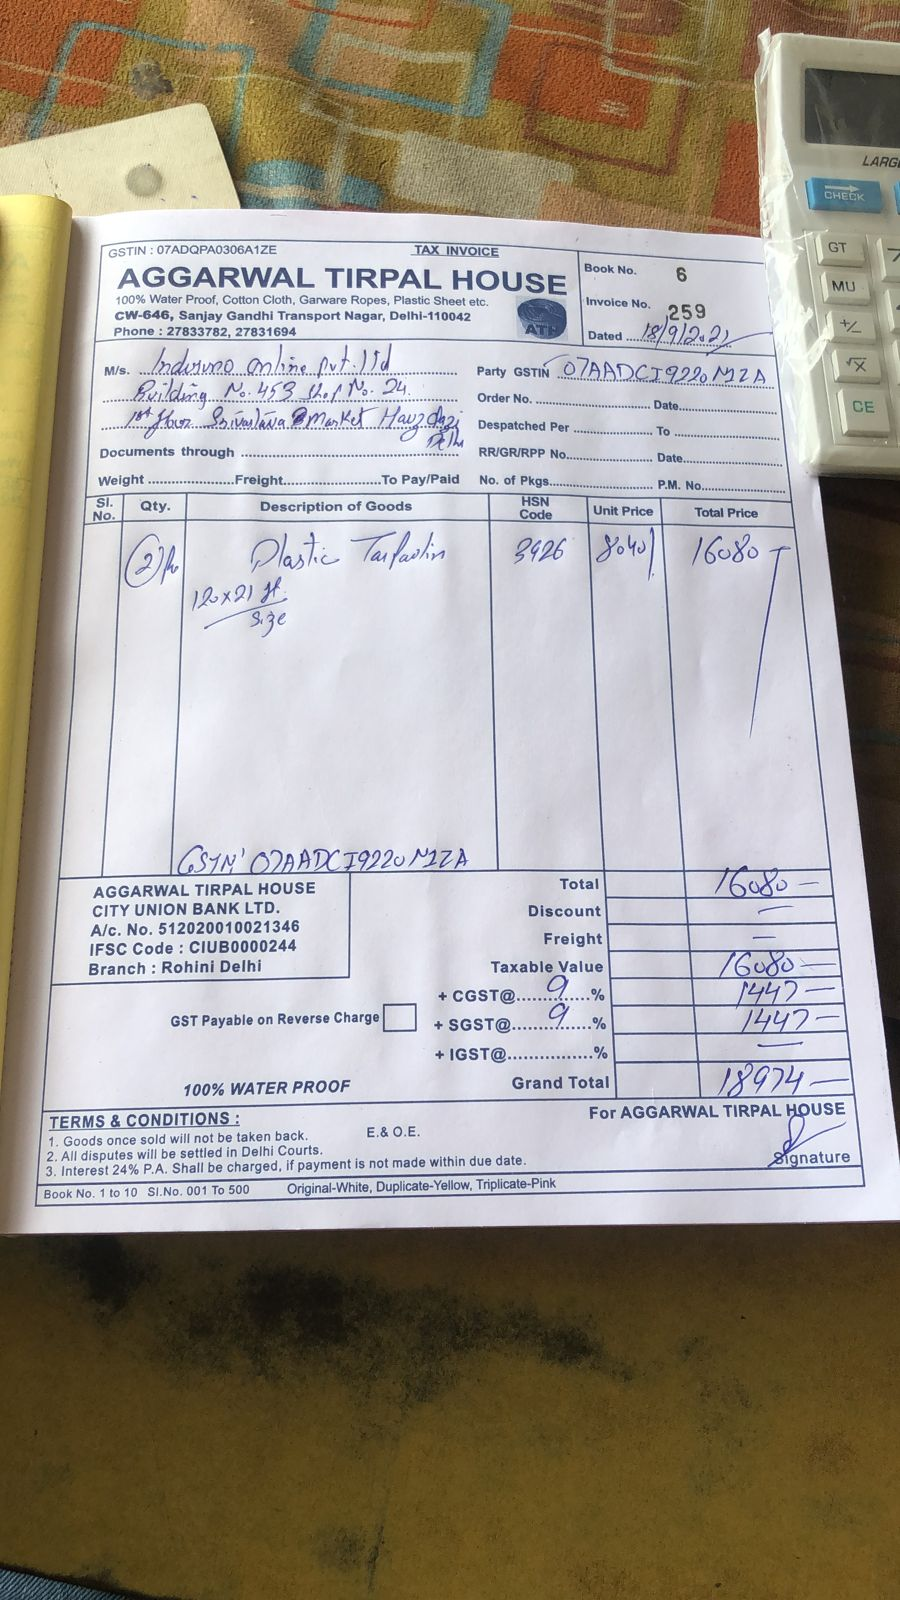 GSTIN : 07ADQPA0306A1ZE TAX INVOICE
AGGARWAL TIRPAL HOUSE
100% Water Proof, Cotton Cloth, Garware Ropes, Plastic Sheet etc.
CW-646, Sanjay Gandhi Transport Nagar, Delhi-110042
Phone : 27833782, 27831694
ATH
Book No. 6
Invoice No. 259
Dated 18/9/2021
M/s. Online Pvt. Ltd
Building No. 453 Shop No. 24.
1st floor Market Hauz Qazi
Delhi
Documents through
Weight Freight To Pay/Paid
Party GSTIN 07AADCI9220M1ZA
Order No. Date
Despatched Per To
RR/GR/RPP No. Date
No. of Pkgs. P.M. No.
Sl. No. Qty. Description of Goods HSN Code Unit Price Total Price
2 Plastic Tarpaulin 3926 8040/ 16080
120x21 ft.
Size
GSTN' 07AADCI9220M1ZA
AGGARWAL TIRPAL HOUSE
CITY UNION BANK LTD.
A/c. No. 512020010021346
IFSC Code : CIUB0000244
Branch : Rohini Delhi
Total 16080 —
Discount —
Freight —
Taxable Value 16080 —
+ CGST@ 9 % 1447 —
GST Payable on Reverse Charge
+ SGST@ 9 % 1447 —
+ IGST@ % —
100% WATER PROOF
Grand Total 18974 —
TERMS & CONDITIONS :
1. Goods once sold will not be taken back. E.& O.E.
2. All disputes will be settled in Delhi Courts.
3. Interest 24% P.A. Shall be charged, if payment is not made within due date.
For AGGARWAL TIRPAL HOUSE
Signature
Book No. 1 to 10 Sl.No. 001 To 500 Original-White, Duplicate-Yellow, Triplicate-Pink
LARG
CHECK
GT
MU
+/-
√x
CE